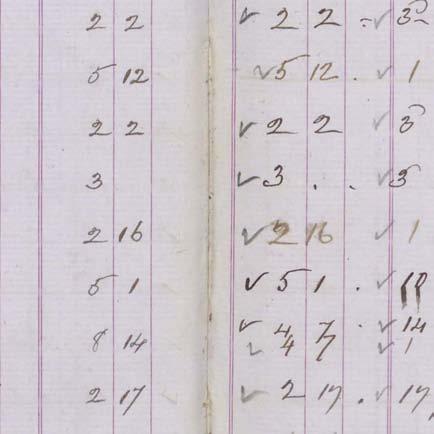 2 2 ✓ 2 2 - ✓ 5 -
5 12 ✓ 5 12 . ✓ 1
2 2 ✓ 2 2 ✓ 5
3 ✓ 3 . . ✓ 5
2 16 ✓ 2 16 ✓ 1
5 1 ✓ 5 1 . ✓
8 14 ✓ 4 7 . ✓ 14
✓ 4 7 ✓ 1
2 17 ✓ 2 17 . ✓ 17